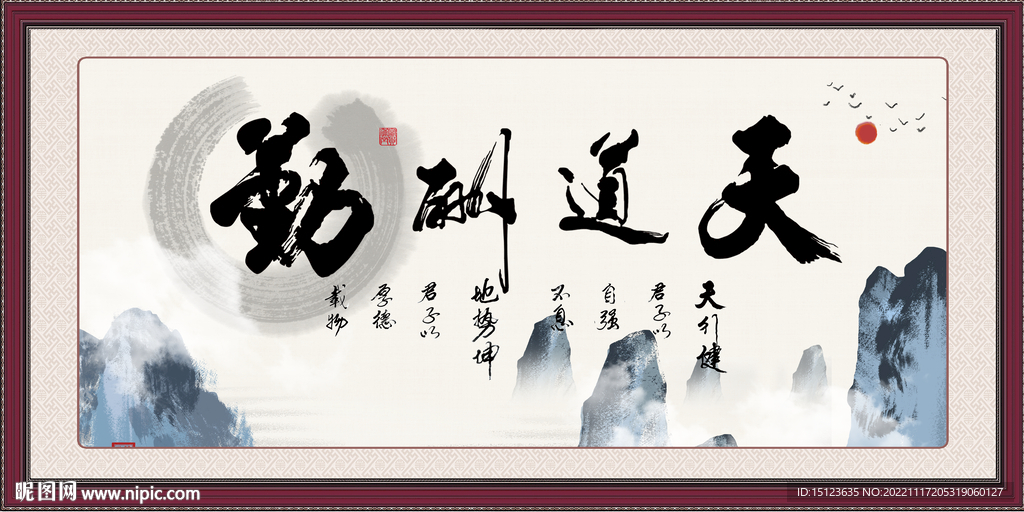 天道酬勤
天行健
君子以
自强
不息
地势坤
君子以
厚德
载物
昵图网 www.nipic.com
ID:15123635 NO:20221117205319060127